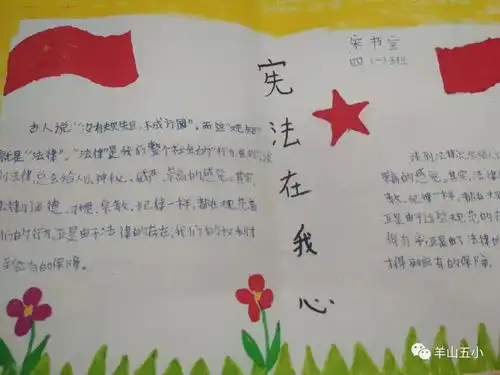 宋书宝
四(一)班
宪法在我心
古人说"没有规矩,不成方圆",而这"规矩"
就是"法律"。"法律"是我们整个社会的"行为规则",谈
到法律总会给人以神秘、威严、崇高的感觉。其实,
法律与道德、习惯、宗教、纪律一样,都在规范着
我们的行为,正是由于法律的存在,我们的权利才
得到应有的保障。
谈到法律总会给人
崇高的感觉。其实,法律
教、纪律一样,都在
正是由于这些规范的
得有序,正是由于法律的
才得到应有的保障。
羊山五小